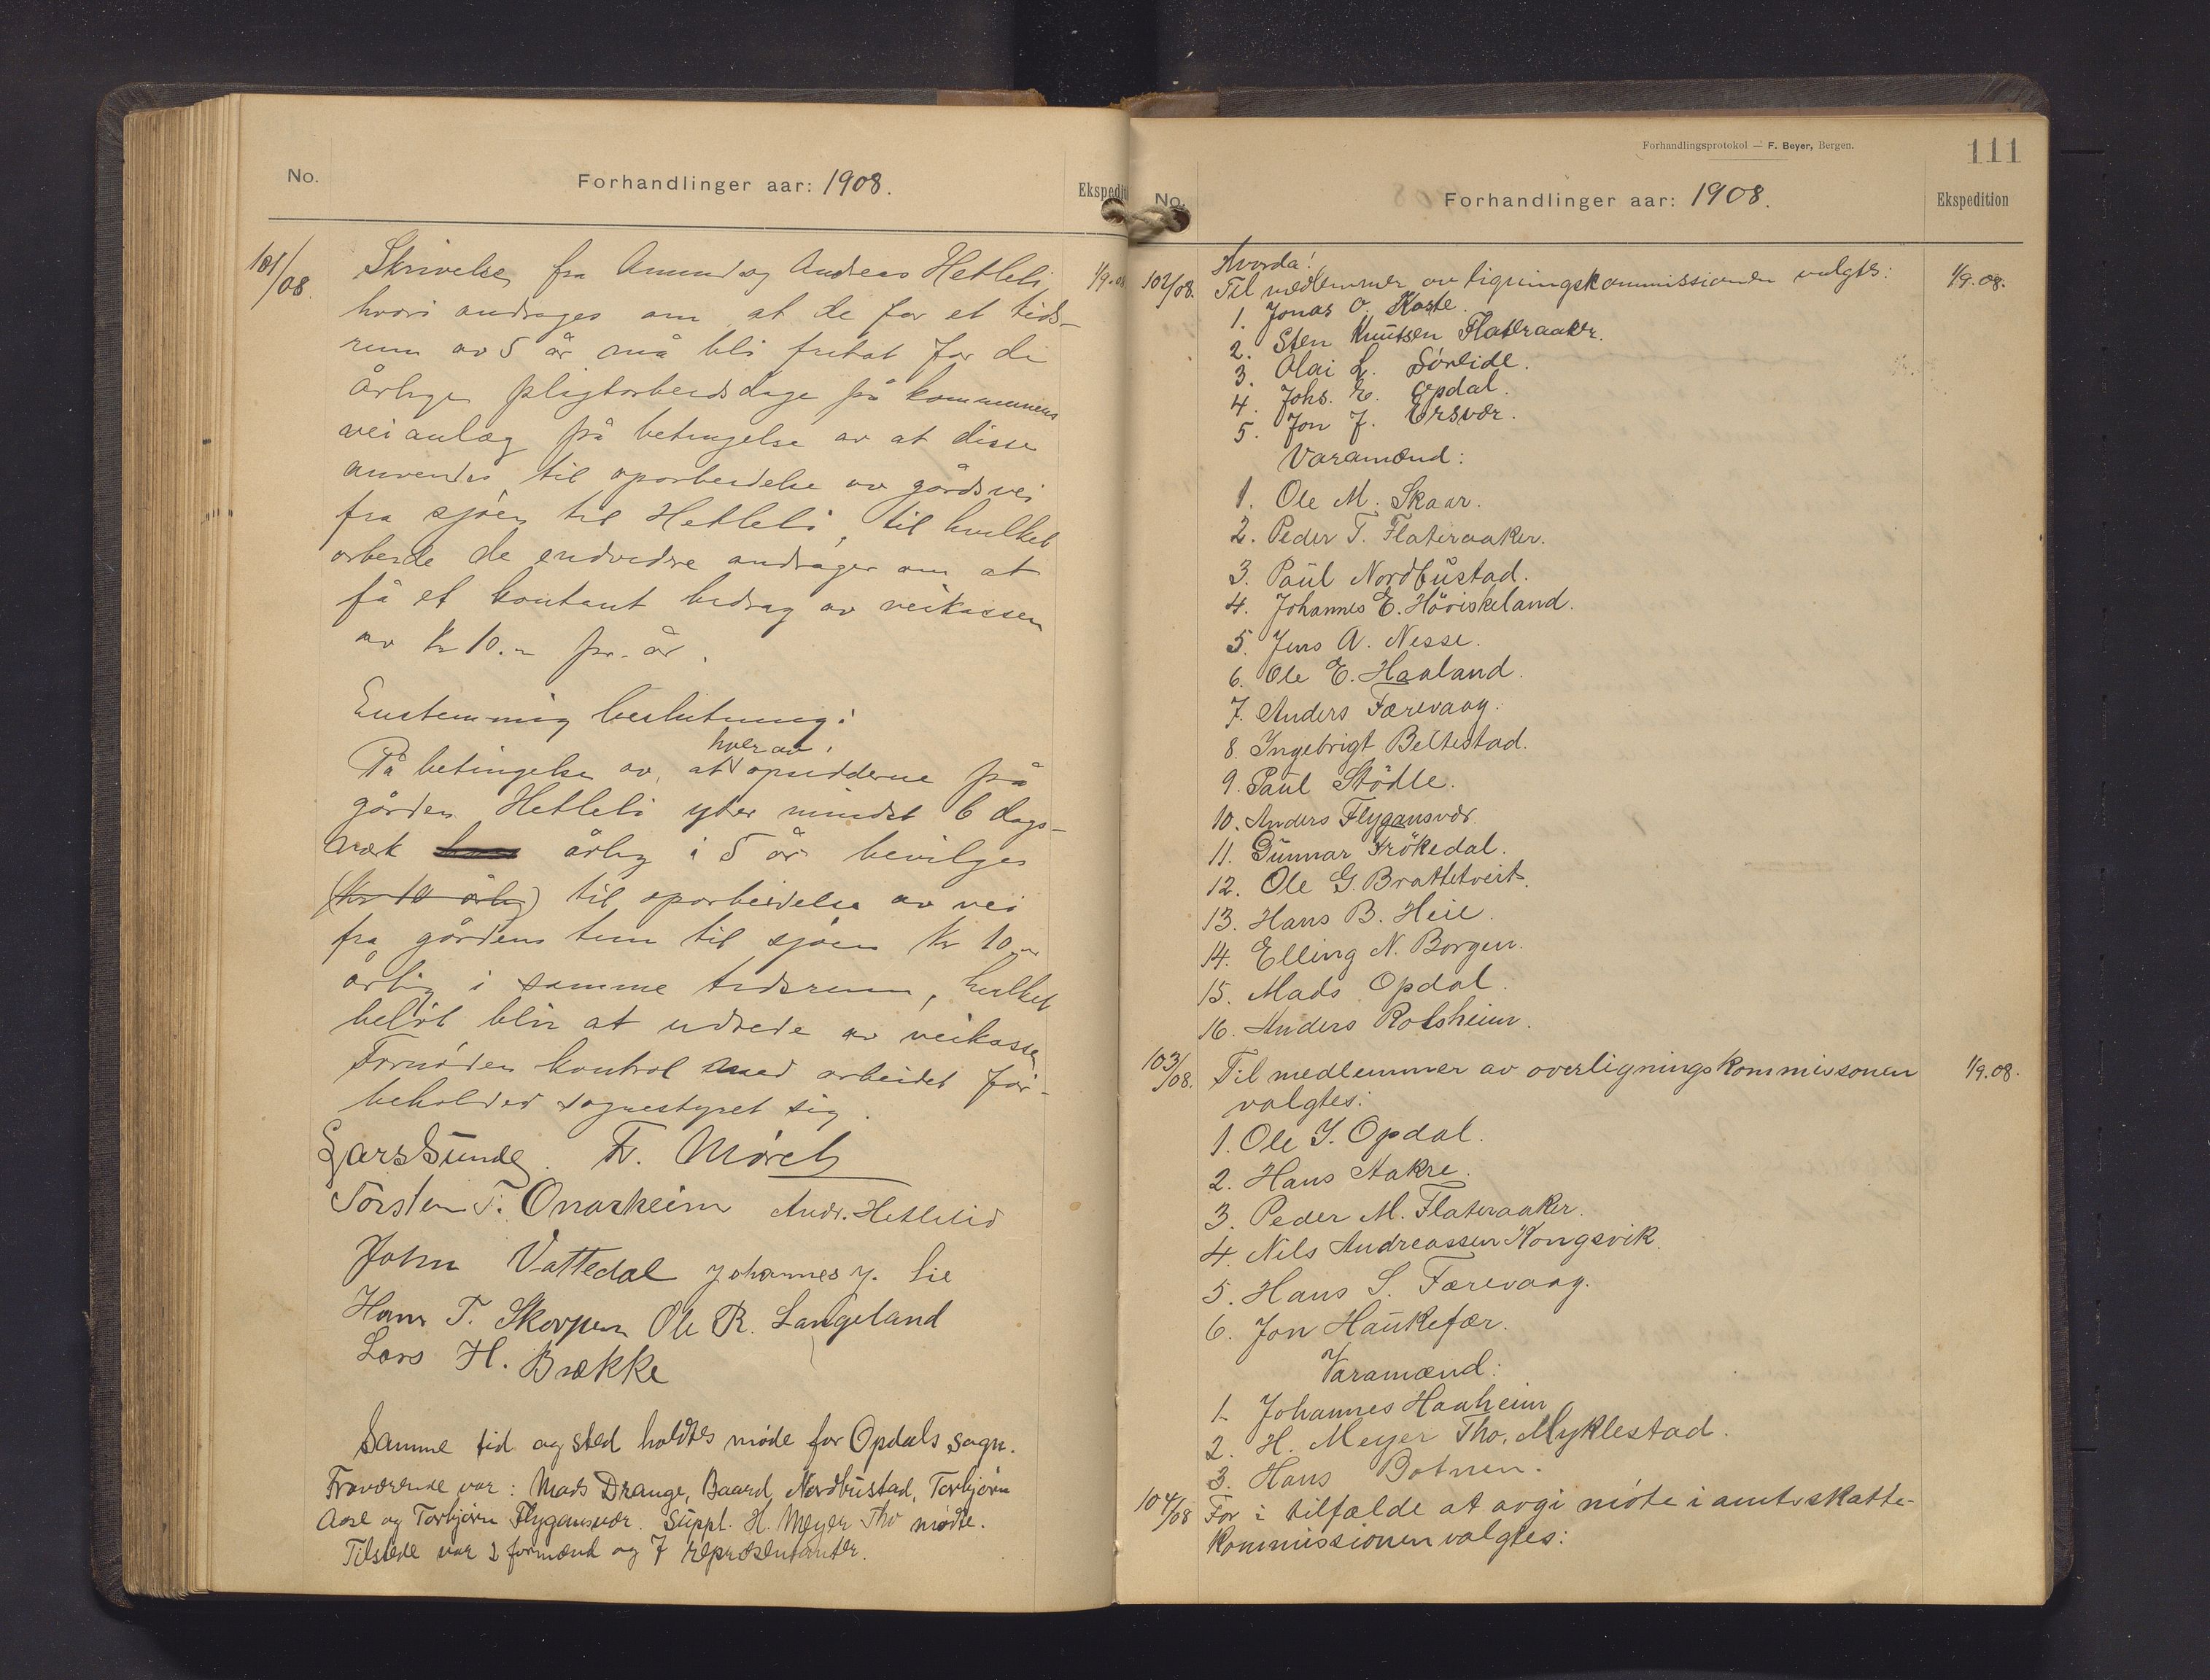 No.
Forhandlinger aar: 1908.
Ekspedi
101/08.
Skrivelse fra Amund og Andreas Hetleli
1/9.08
hvori andrages om at de for et tids-
rum av 5 år må bli fritat for de
årlige pligtarbeidsdage på kommunens
veianlæg på betingelse av at disse
anvendes til oparbeidelse av gårdsvei
fra sjøen til Hetleli, til hvilket
arbeide de endvidre andrager om at
få et kontant bidrag av veikassen
av kr 10.- pr. år.
Enstemmig beslutning:
hver av
På betingelse av, at opsidderne på
gården Hetleli yder mindst 6 dags-
værk årlig i 5 år bevilges
(kr 10 årlig) til oparbeidelse av vei
fra gårdens tun til sjøen kr 10.-
årlig i samme tidsrum, hvilket
beløb blir at udrede av veikassen
Fornøden kontrol med arbeidet for-
beholder sognestyret sig.
Lars Sunde. Fr. Mørch
Torsten T. Onarheim Andr. Hetlelid
John Vattedal Johannes J. Lie
Hans T. Skorpen Ole R. Langeland
Lars H. Brække
Samme tid og sted holdtes møde for Opdals sogn.
Fraværende var: Mads Drange, Baard Nordbustad, Torbjørn
Aase og Torbjørn Flygansvær. Suppl. H. Meyer Tho mødte.
Tilstede var 2 formænd og 7 repræsentanter.
Forhandlingsprotokol — F. Beyer, Bergen.
111
No.
Forhandlinger aar: 1908.
Ekspedition
Hvorda!
102/08. Til medlemmer av ligningskommissionen valgtes:
1/9.08.
1. Jonas O. Kaste.
2. Sten Knutsen Flateraaker.
3. Olai L. Sørlide.
4. Johs. E. Opdal.
5. Jon J. Ersvær.
Varamænd:
1. Ole M. Skaar.
2. Peder T. Flateraaker.
3. Paul Nordbustad.
4. Johannes E. Høviskeland.
5. Jens A. Nesse.
6. Ole E. Haaland.
7. Anders Færevaag.
8. Ingebrigt Beltestad.
9. Paul Stødle.
10. Anders Flygansvær.
11. Gunnar Frøkedal.
12. Ole G. Brattetveit.
13. Hans B. Heie.
14. Elling N. Borgen.
15. Mads Opdal.
16. Anders Rolsheim.
103/08. Til medlemmer av overligningskommissonen
1/9.08.
valgtes:
1. Ole Y. Opdal.
2. Hans Aakre.
3. Peder M. Flateraaker.
4. Nils Andreassen Kongsvik.
5. Hans S. Færevaag.
6. Jon Haukefær.
Varamænd:
1. Johannes Haaheim
2. H. Meyer Tho, Myklestad.
3. Hans Botnen.
104/08 For i tilfælde at avgi møte i amtsskatte-
kommissionen valgtes: